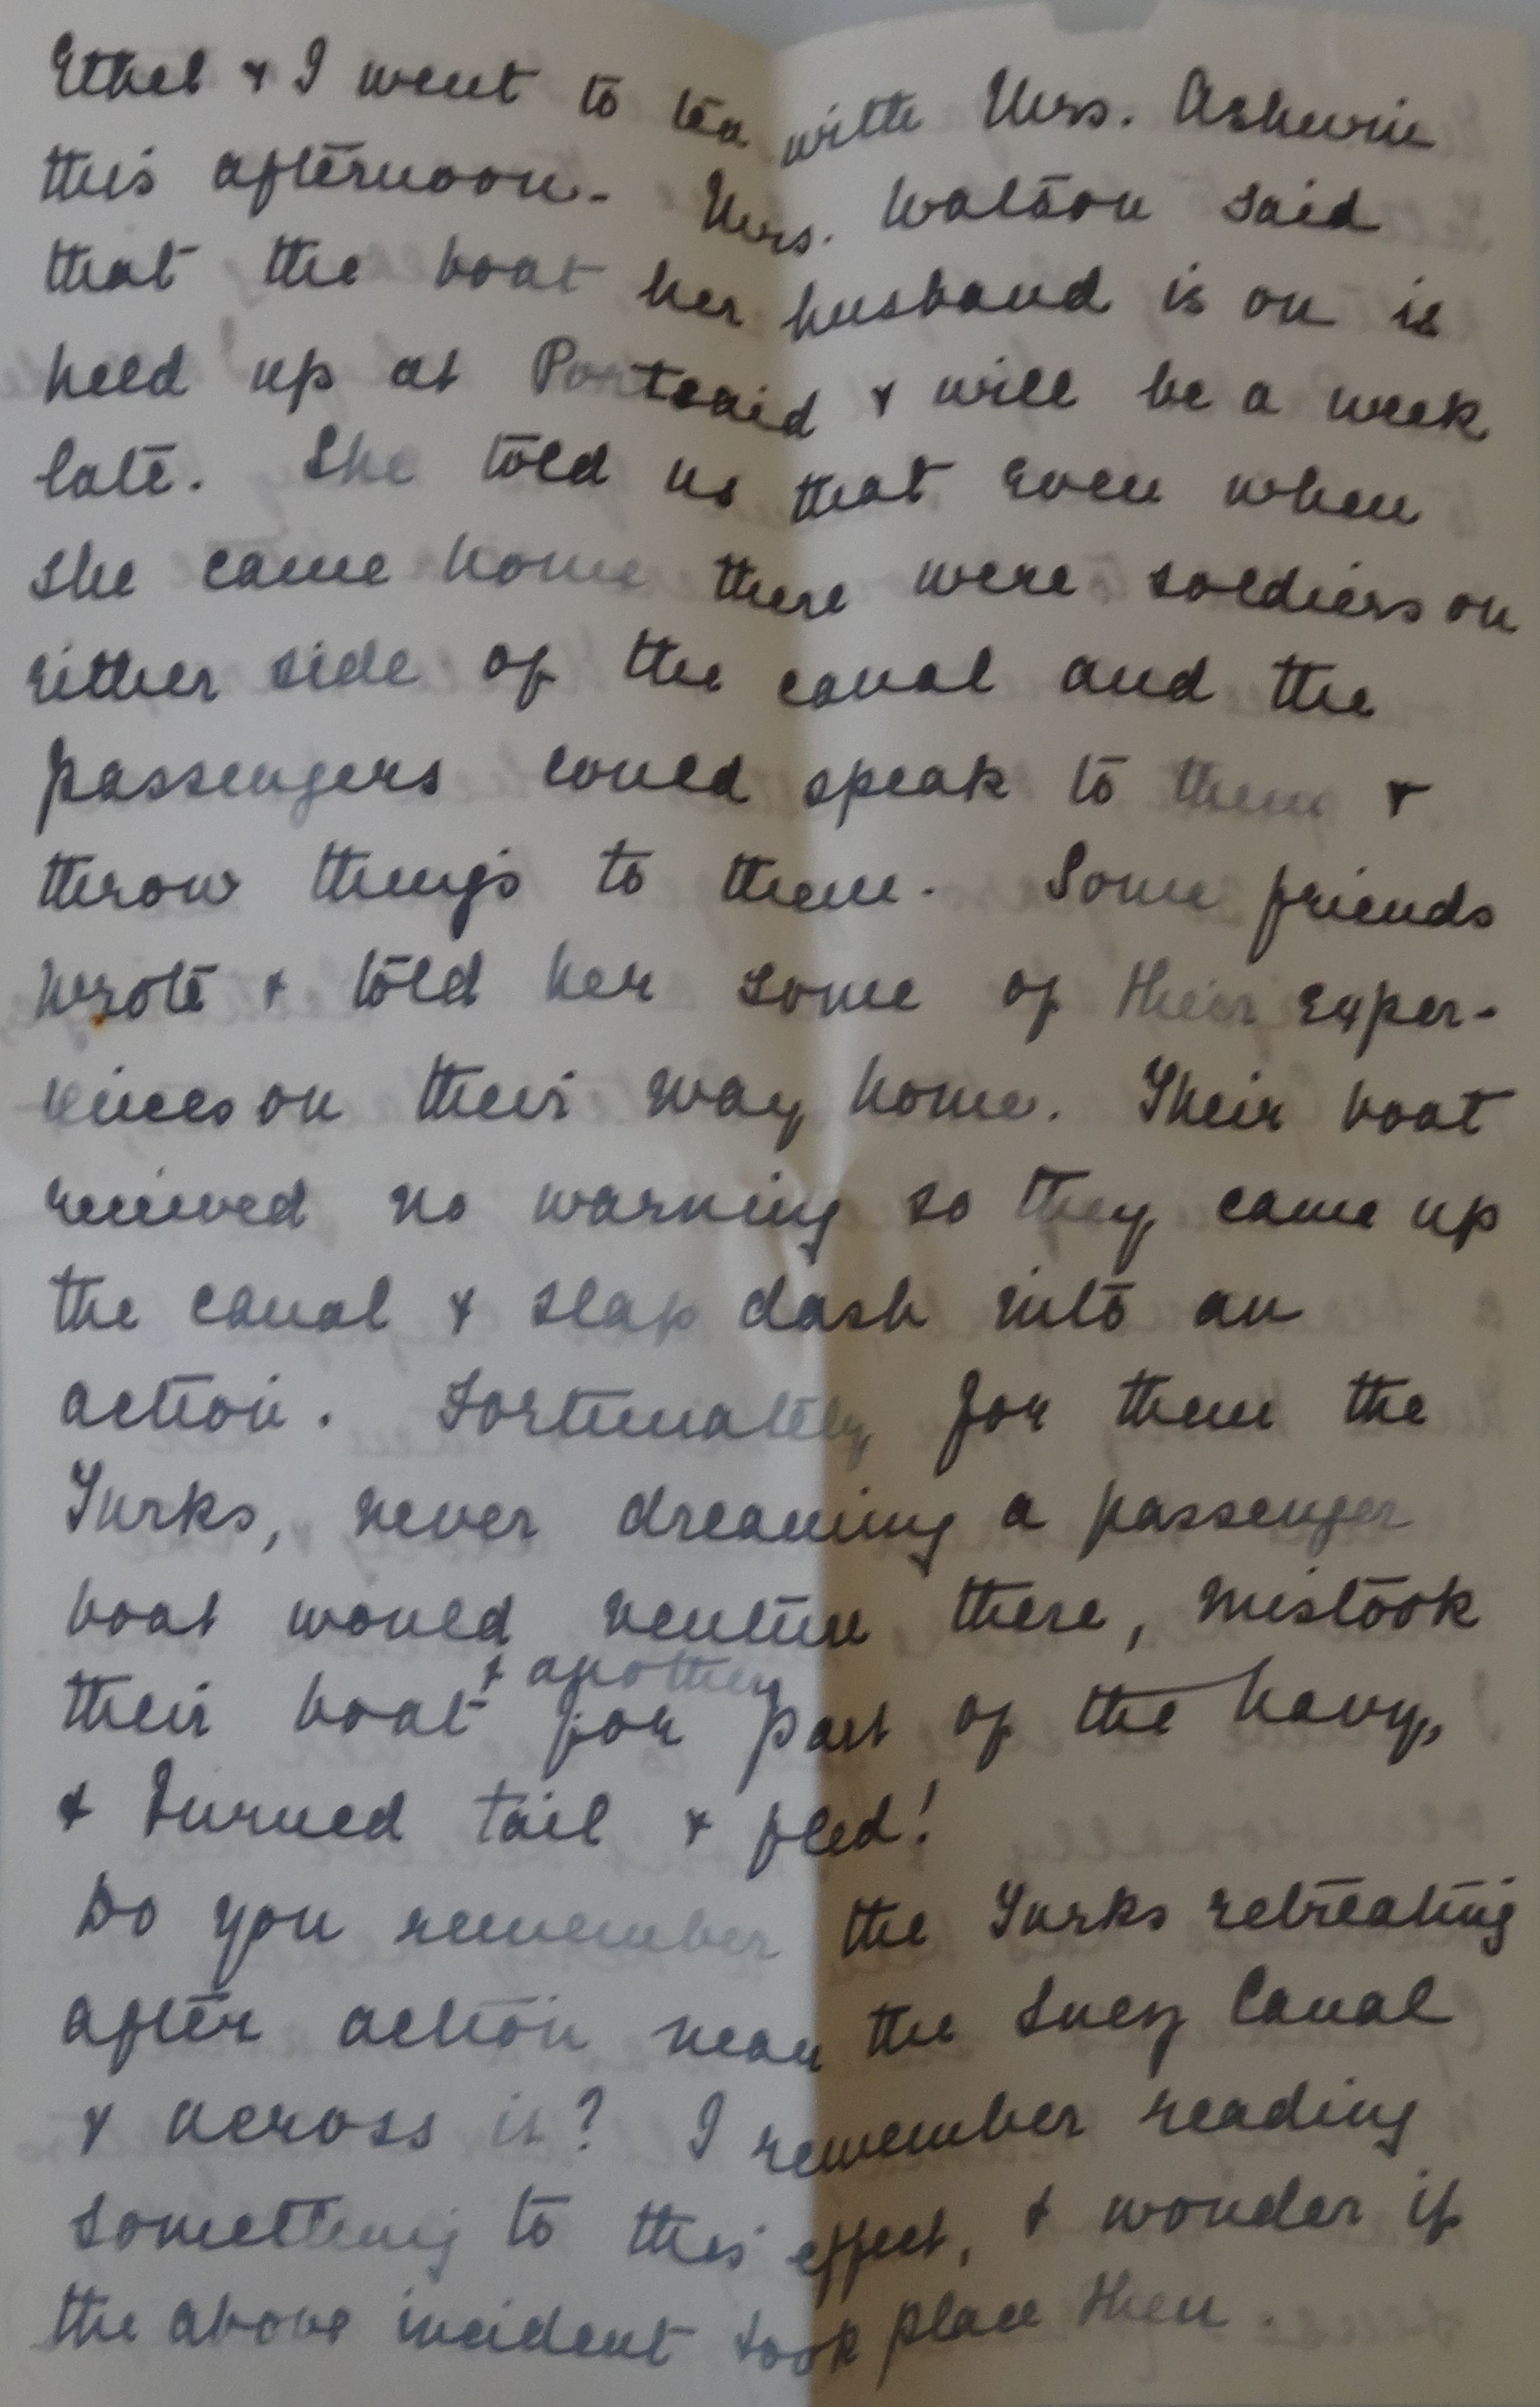 Ethel & I went to tea with Mrs. Ashwin
this afternoon. Mrs. Watson said
that the boat her husband is on is
held up at Portsaid & will be a week
late. She told us that even when
she came home there were soldiers on
either side of the canal and the
passengers could speak to them &
throw things to them. Some friends
wrote & told her some of their exper-
iences on their way home. Their boat
received no warning so they came up
the canal & slap dash into an
action. Fortunately for them the
Turks, never dreaming a passenger
boat would venture there, mistook
& another
their boat for part of the navy,
& turned tail & fled!
Do you remember the Turks retreating
after action near the Suez Canal
& across it? I remember reading
something to this effect, & wonder if
the above incident took place then.